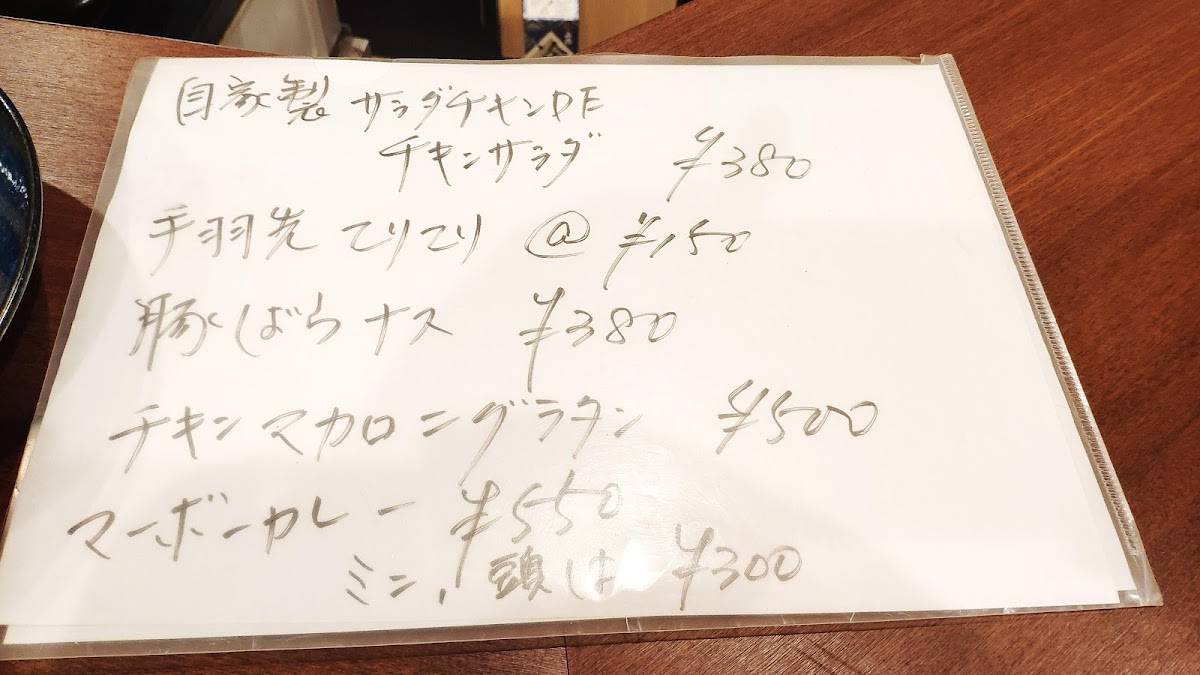 自家製 サラダチキンDE
チキンサラダ ¥380
手羽先 てりてり @ ¥150
豚ばらナス ¥380
チキンマカロニグラタン ¥500
マーボーカレー ¥550
ミニ ¥300